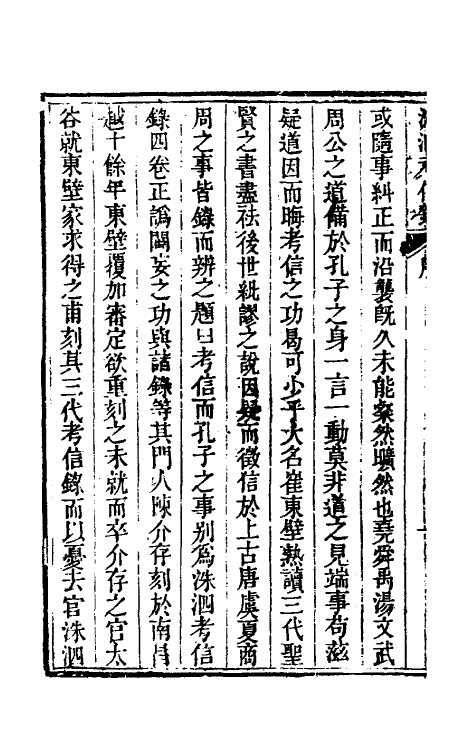 洙泗考信錄　序
或隨事糾正而沿襲旣久未能粲然曠然也堯舜禹湯文武
周公之道備於孔子之身一言一動莫非道之見端事苟滋
疑道因而晦考信之功曷可少乎大名崔東壁熟讀三代聖
賢之書盡祛後世紕謬之說因疑而徵信於上古唐虞夏商
周之事皆錄而辨之題曰考信而孔子之事别爲洙泗考信
錄四卷正譌闢妄之功與諸錄等其門人陳介存刻於南昌
越十餘年東壁覆加審定欲重刻之未就而卒介存之官太
谷就東壁家求得之甫刻其三代考信錄而以憂去官洙泗